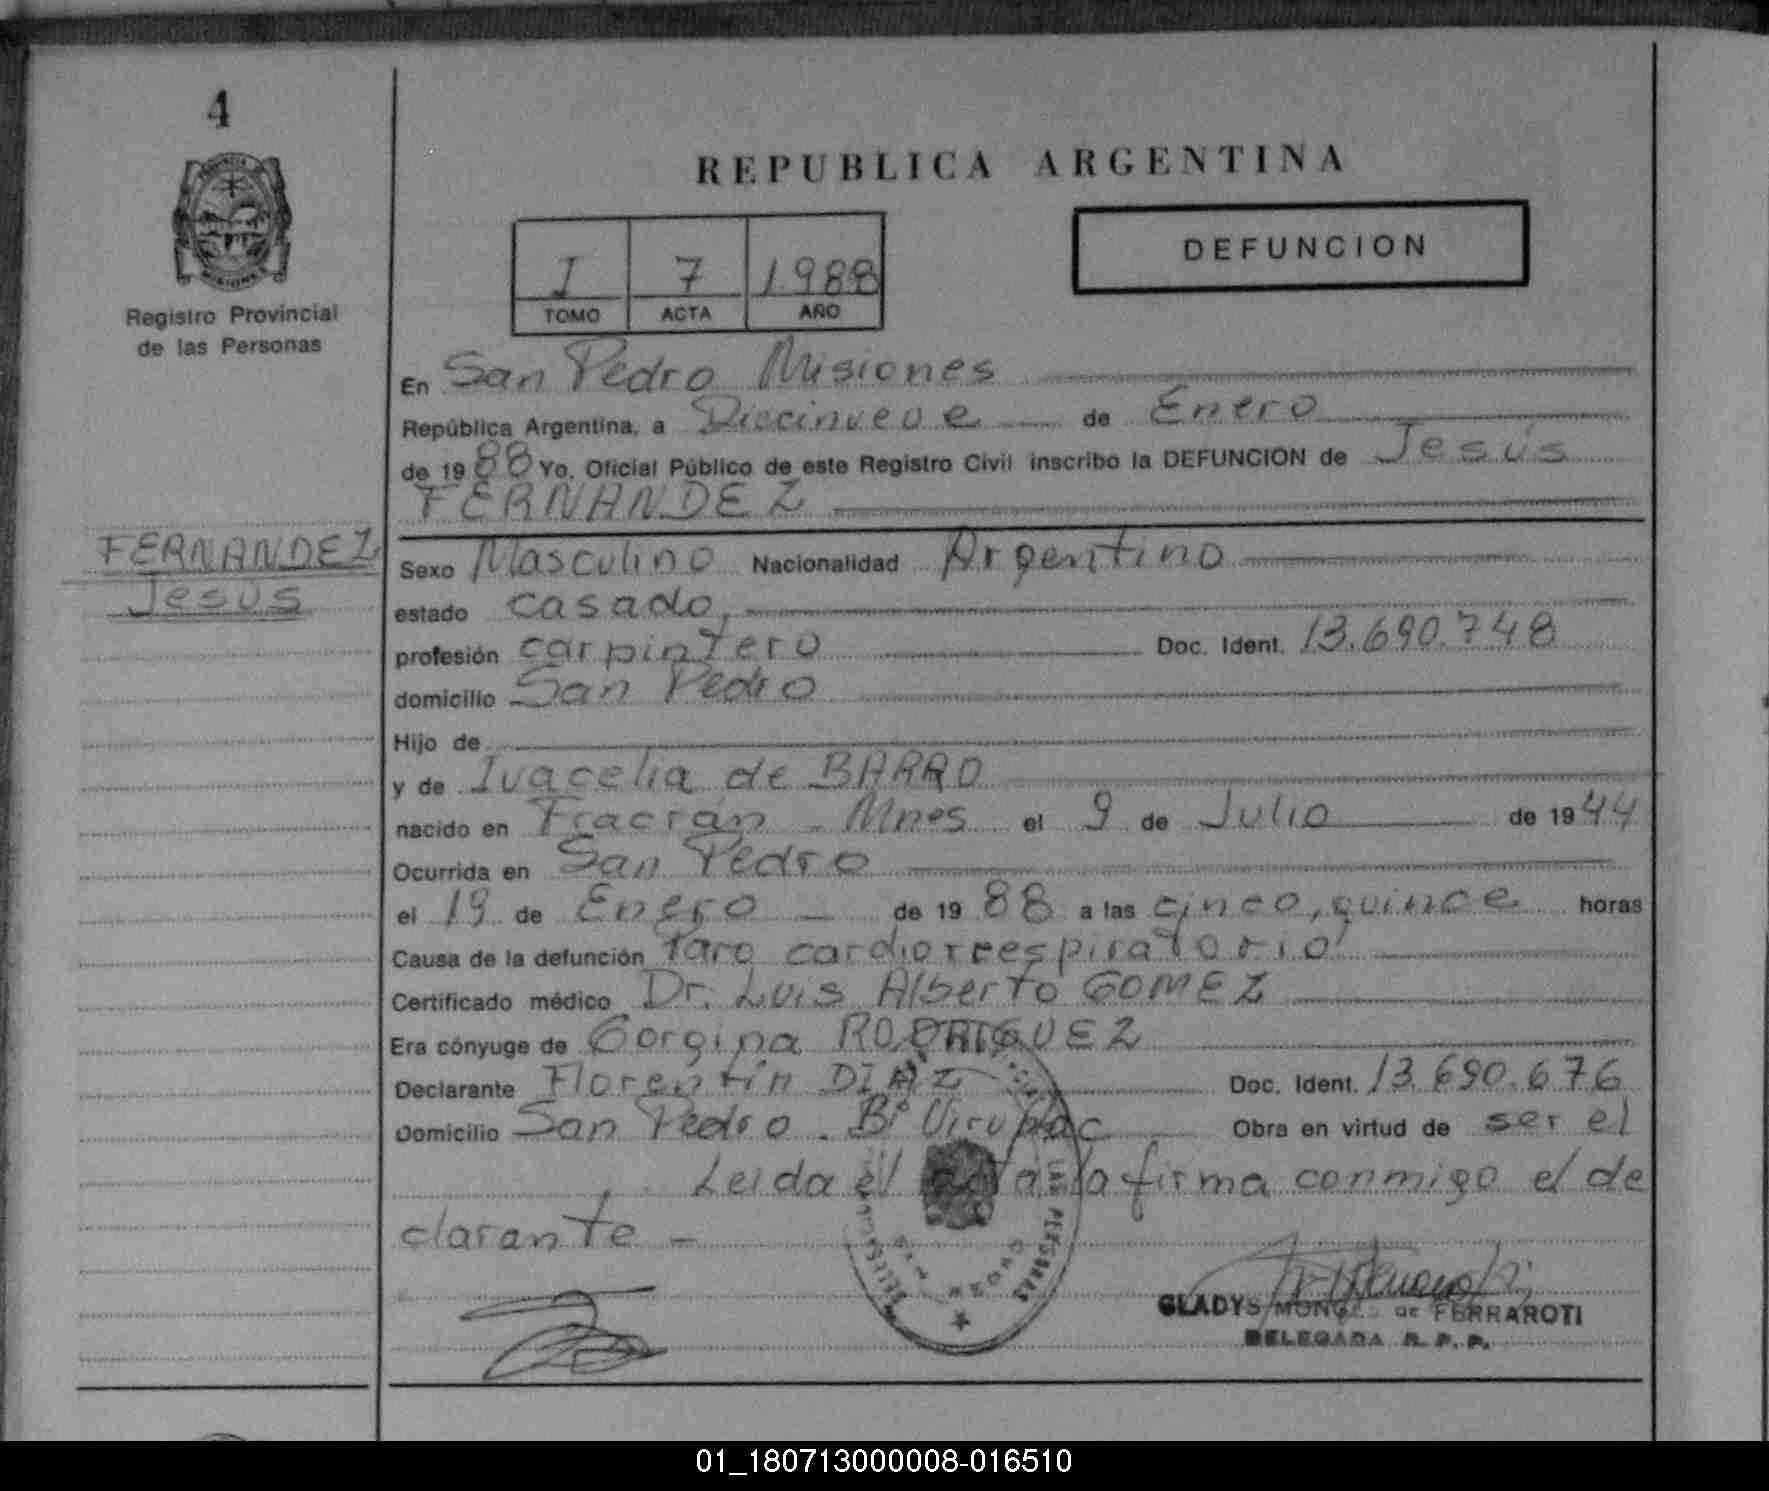 4
REPUBLICA ARGENTINA
DEFUNCION
I 7 1988
TOMO ACTA AÑO
Registro Provincial
de las Personas
En San Pedro Misiones
República Argentina, a Diecinueve de Enero
de 1988 Yo, Oficial Público de este Registro Civil inscribo la DEFUNCION de Jesús
FERNANDEZ
FERNANDEZ
Jesús
Sexo Masculino Nacionalidad Argentino
estado casado,
profesión carpintero Doc. Ident. 13.690.748
domicilio San Pedro
Hijo de
y de Ivacelia de BARRO
nacido en Fracrán - Mnes el 9 de Julio de 1944
Ocurrida en San Pedro
el 19 de Enero de 1988 a las cinco, quince horas
Causa de la defunción Paro cardiorreespiratorio
Certificado médico Dr. Luis Alberto GOMEZ
Era cónyuge de Gorgina RODRIGUEZ
Declarante Florentín DIAZ Doc. Ident. 13.690.676
Domicilio San Pedro. Bº Obra en virtud de ser el
Leida el acta la firma conmigo el de
clarante -
GLADYS de FERRAROTI
DELEGADA R. P. P.
01_180713000008-016510